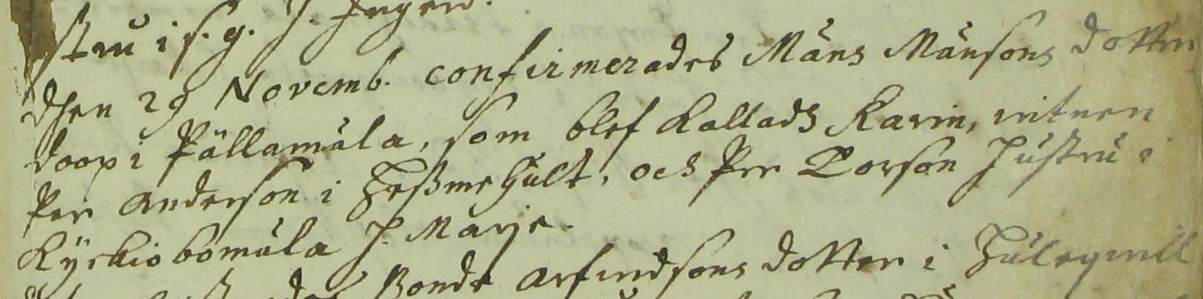 stru i s. g. J. Ingen.
dhen 29 Novemb. confirmerades Måns Månsons dotter
doop i Pällamåla, som blef kallads Karin, vitnen
Per Anderson i och Per Torson Hustru i
Kyrkiobomåla J. Marje.
Bonde Arfwedsons dotter i